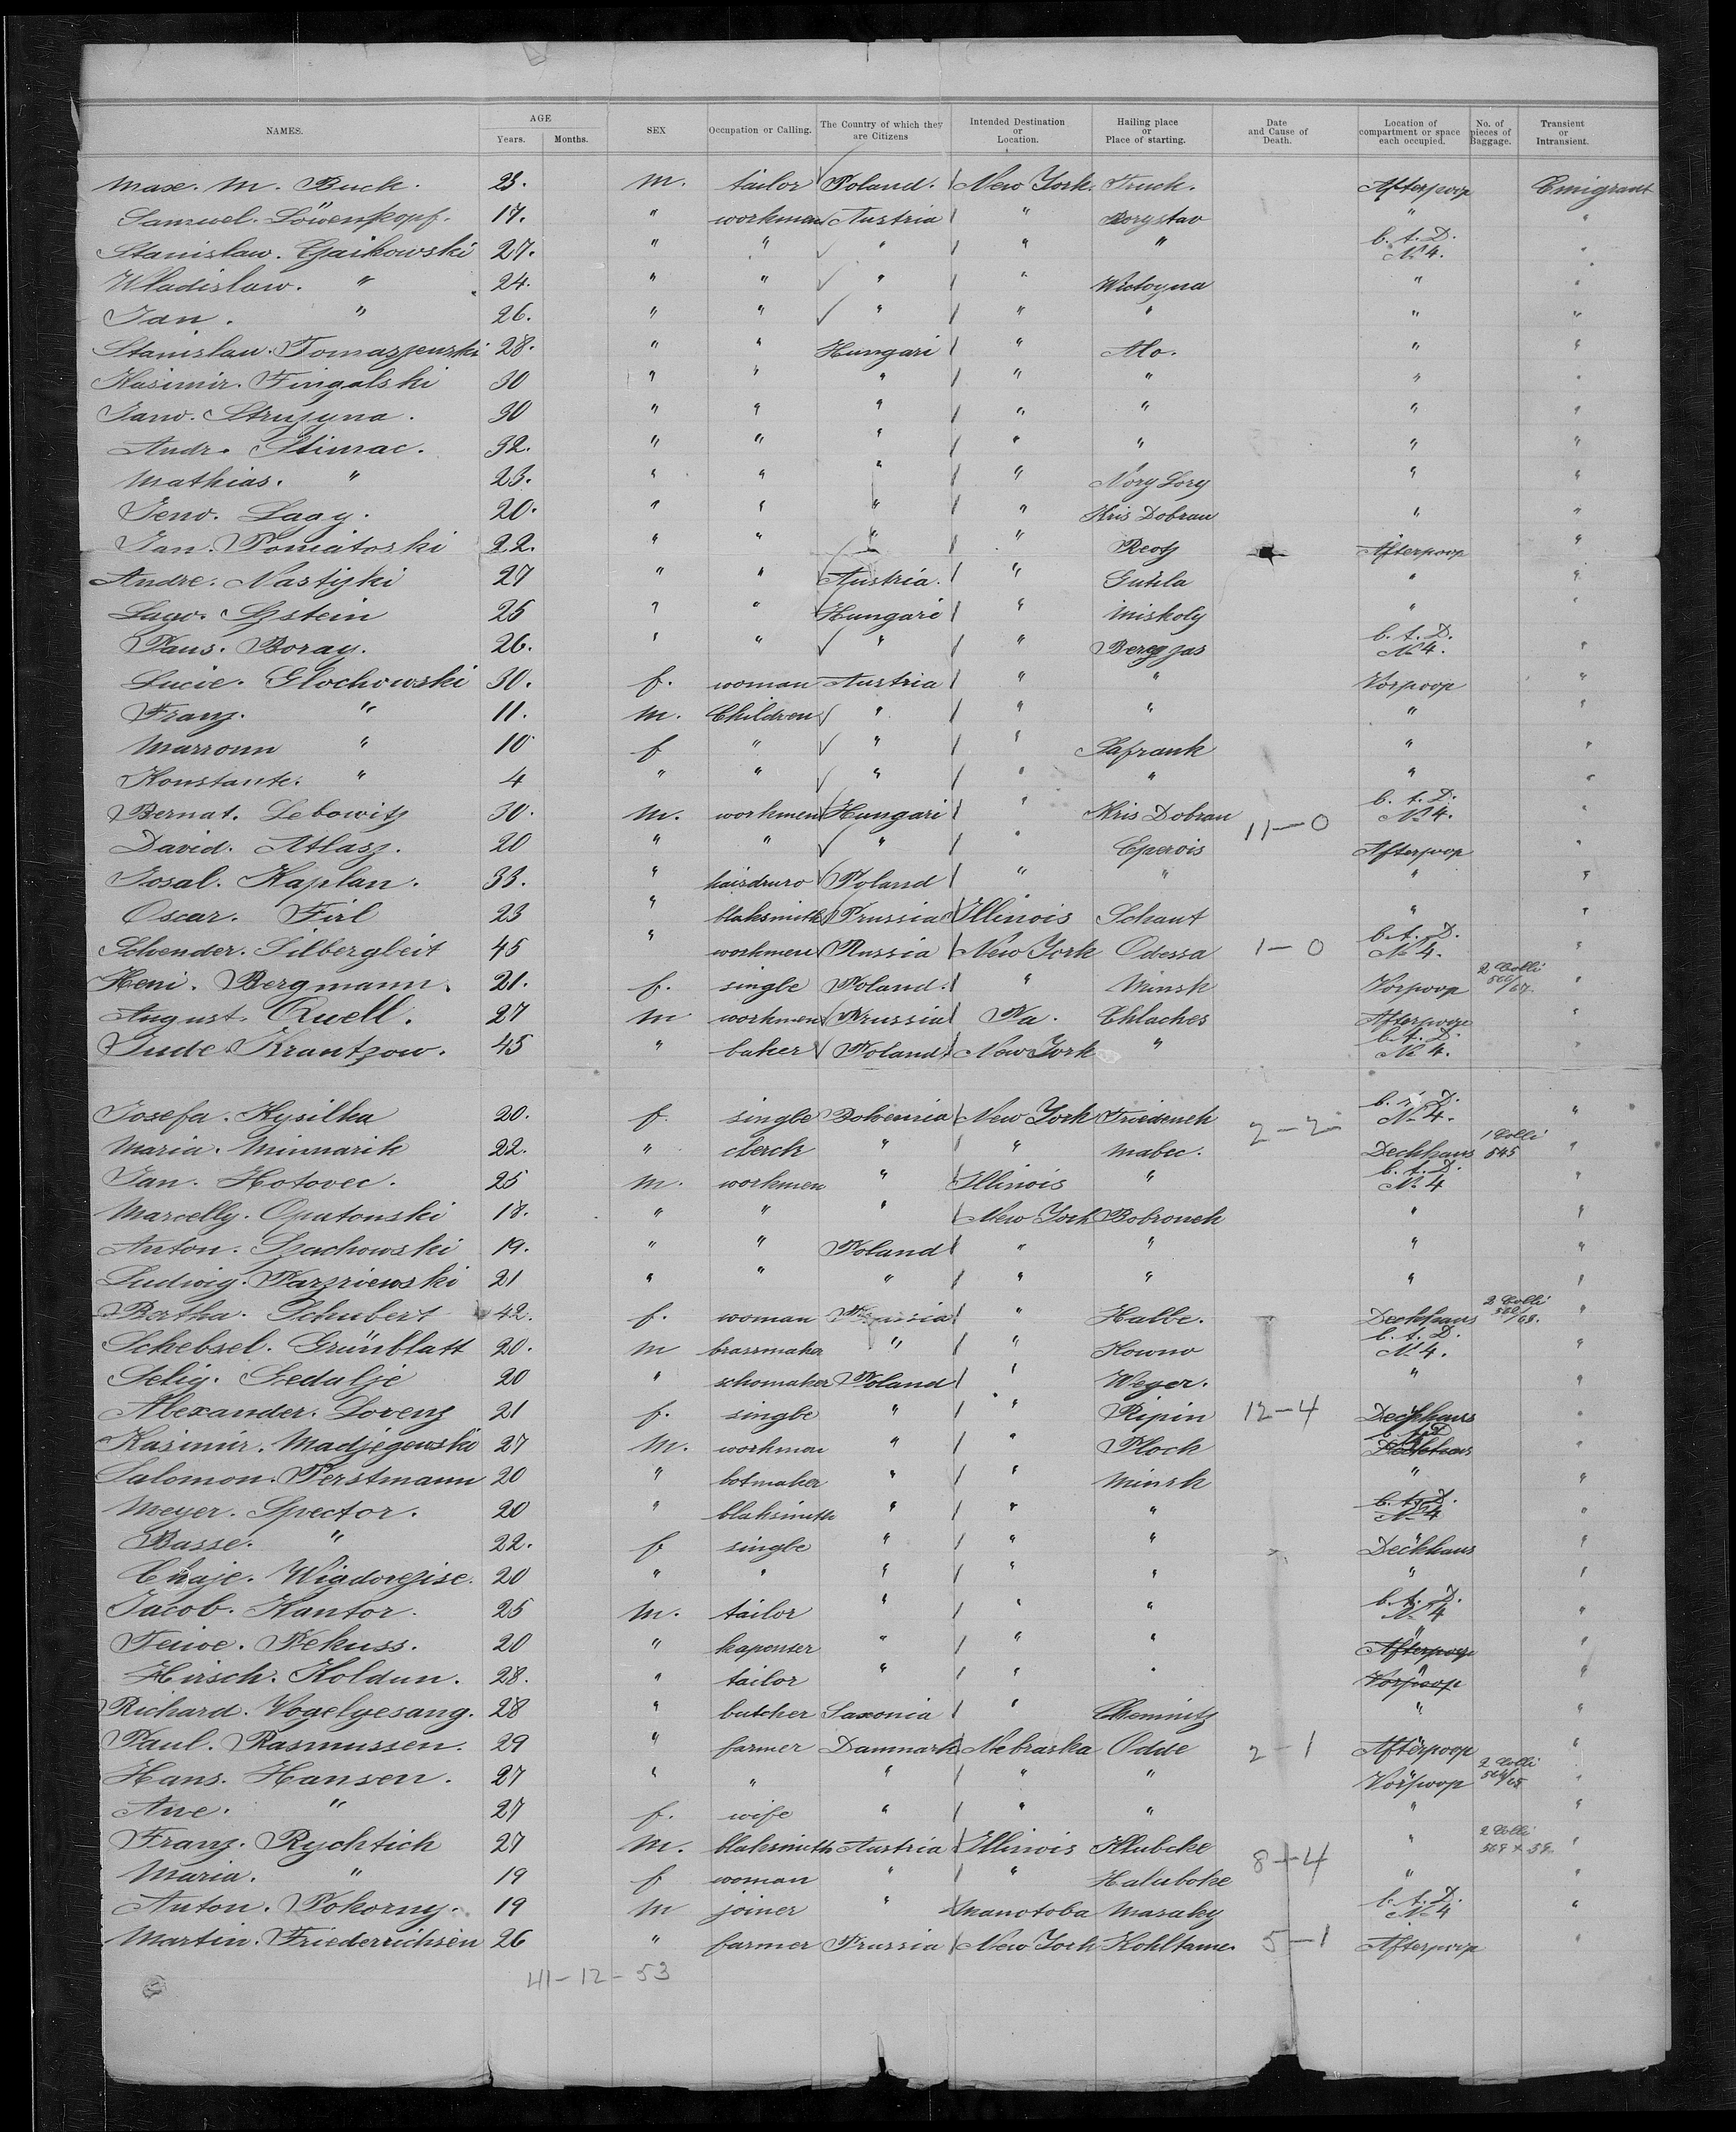 NAMES. AGE SEX Occupation or Calling. The Country of which they are Citizens Intended Destination or Location. Hailing place or Place of starting. Date and Cause of Death. Location of compartment or space each occupied. No. of pieces of Baggage. Transient or Intransient.
Years. Months.
Max. M. Buck. 23. m. tailor Poland. New York Truch. Afterpoop Emigrant
Samuel. Löwenkopf. 17. " workmen Austria " Borystav " "
Stanislaw. Gaikowski 27. " " " " " C. t. D. No 4. "
Wladislaw. " 24. " " " " Wictoyna " "
Jan. " 26. " " " " " " "
Stanislau. Tomaszenski 28. " " Hungari " Alo. " "
Kasimir. Fingalski 30 " " " " " " "
Janv. Struzyna. 30 " " " " " " "
Andr. Stimac. 32. " " " " " " "
Mathias. " 23. " " " " Nory Lory " "
Jenv. Laay. 20. " " " " Kris Dobrau " "
Jan. Poniatoski 22. " " " " Reotz Afterpoop "
Andre. Nastizki 27 " " Austria. " Gutila " "
Lagv. Szstein 25 " " Hungari " Miskoly " "
Paus. Boray. 26. " " " " Beregzas C. t. D. No 4. "
Lucie. Glochowski 30. f. woman Austria " " Vorpoop "
Franz. " 11. m. Children " " " " "
Marronn " 10 f " " " Lafrank " "
Konstante. " 4 " " " " " " "
Bernat. Lebowitz 30. m. workmen Hungari " Kris Dobrau 11-0 C. t. D. No 4. "
David. Atlasz. 20 " " " " Eperois Afterpoop "
Josal. Kaplan. 33. " Poland " " " "
Oscar. Firl 23 " blaksmith Prussia Illinois Schant " "
Schender. Silbergleit 45 " workmen Russia New York Odessa 1-0 C. t. D. No 4. "
Heni. Bergmann. 21. f. single Poland. " Minsk Vorpoop 2 Colli 566/67. "
August. Quell. 27 m workmen Prussia Pa. Chlaches Afterpoop "
Jude. Krantzow. 45 " baker Poland New York " C. t. D. No 4. "
Josefa. Kysilka 20. f. single Bohemia New York Friedenek 2-2 C. t. D. No 4. "
Maria. Minnarik 22. " clerck " " Mabec. Deckhaus 1 Colli 545 "
Jan. Hotovec. 25 m. workmen " Illinois " C. t. D. No 4 "
Marcelly. Opatonski 18. " " " New York Bobronek " "
Anton. Szachowski 19. " " Poland " " " "
Ludwig. Parzriewski 21 " " " " " " "
Bertha. Schubert 42. f. woman " Halbe. Deckhaus 2 Colli "
Schebsel. Grünblatt 20. m brassmaker " " Kowno C. t. D. No 4. "
Selig. Gedalje 20 " schomaker Poland " Weger. " "
Alexander. Lorenz 21 f. single " " Ripin 12-4 Deckhaus "
Kasimir. Madjegewski 27 m. workmen " " Plock C. t. D. Deckhaus "
Salomon. Perstmann 20 " botmaker " " Minsk " "
Meyer. Spector. 20 " blaksmith " " " C. t. D. No 4 "
Basse. " 22. f. single " " " Deckhaus "
Chaje. Wigdorczise. 20 " " " " " " "
Jacob. Kantor. 25 m. tailor " " " C. t. D. No 4 "
Feiwe. Pekuss. 20 " kapenser " " " " Afterpoop "
Hirsch. Koldun. 28. " tailor " " " " Vorpoop "
Richard. Vogelgesang. 28 " butcher Saxonia " Chemnitz " "
Paul. Rasmussen. 29 " farmer Danmark Nebraska Odde 2-1 Afterpoop "
Hans. Hansen. 27 " " " " " Vorpoop 2 Colli 564/65 "
Ane. " 27 f. wife " " " " "
Franz. Rychtich 27 m. blaksmith Austria Illinois Hlubcke 8+4 " 2 Colli "
Maria. " 19 f woman " " Halubcke " "
Anton. Pokorny. 19 m joiner " Manotoba Masaky C. t. D. No 4 "
Martin. Friederrichsen 26 " farmer Prussia New York Kohltame. 5-1 Afterpoop "
41-12-53